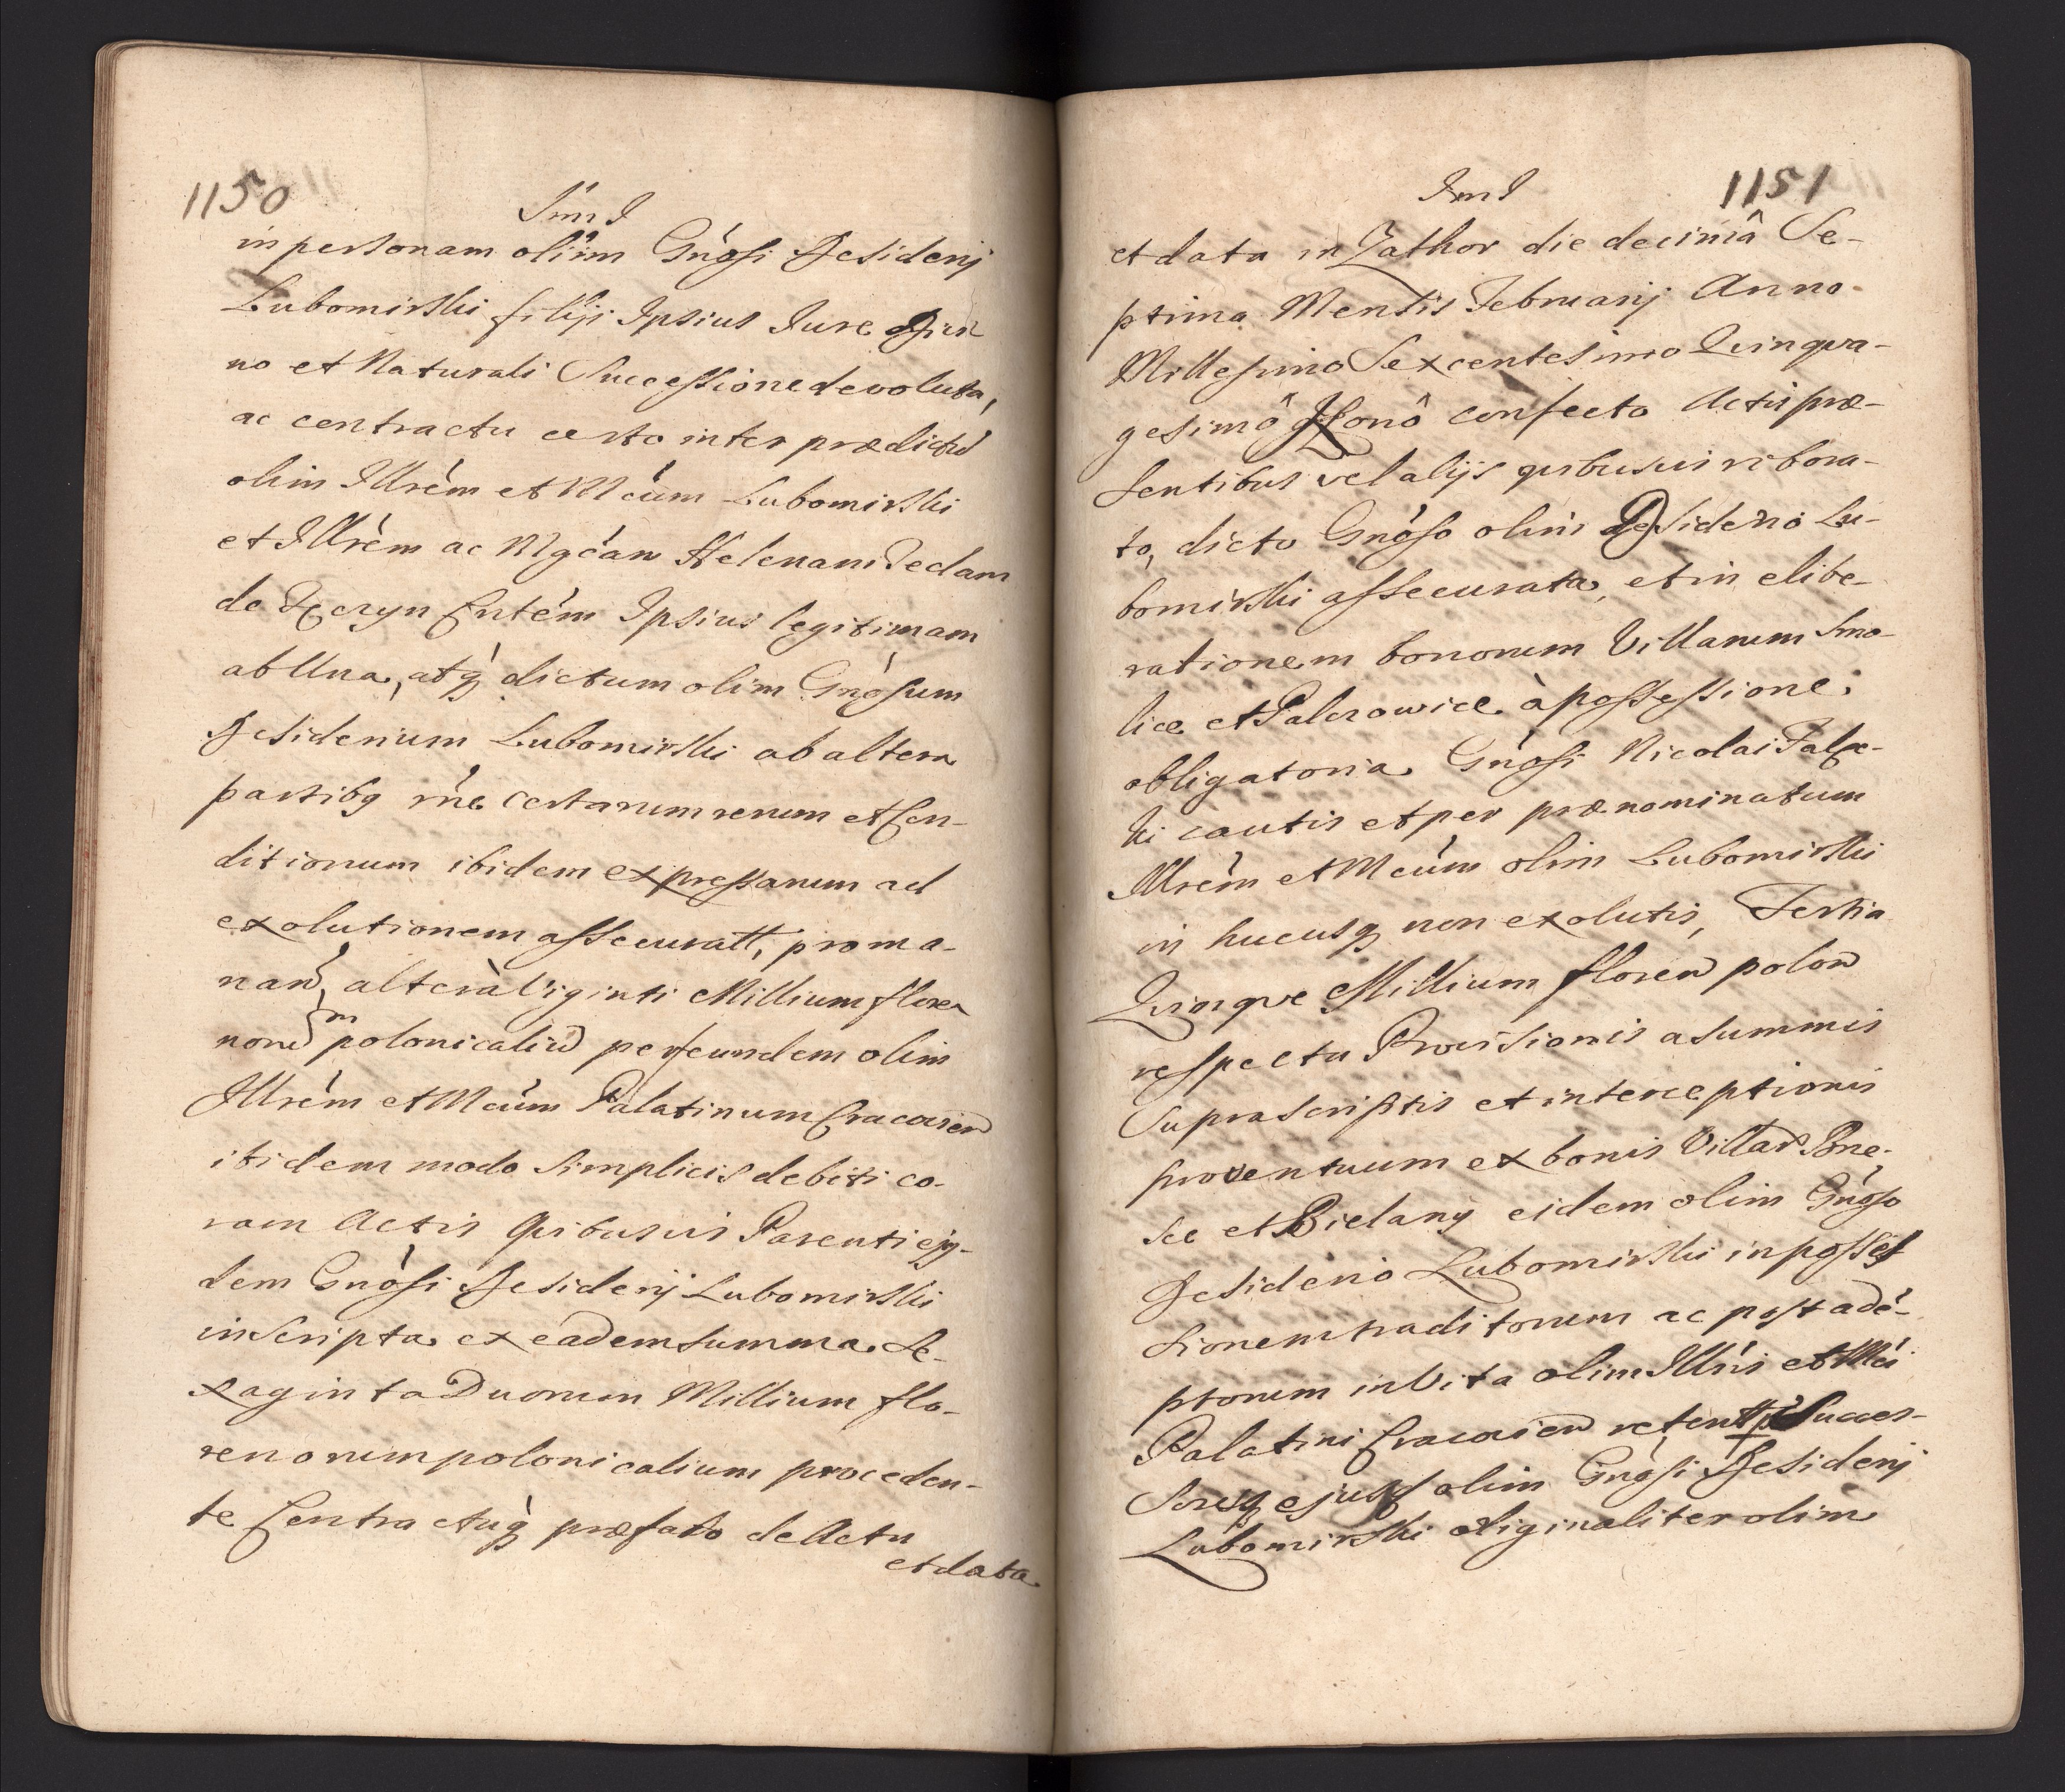 1150
ImI
in personam olim Gnósi Desiderij
Lubomirski filiji Ipsius Jure Divi
no et Naturali Successione devoluta,
ac contractu certo inter prædictũ
olim Illrém et Mcúm Lubomirski
et Illrém ac Mgcám Helenam Teclam
de Teczyn Cntém Ipsius legitimam
ab Una, atq dictum olim Gnósum
Desiderium Lubomirski ab altera
partibq rńe certarum rerum et Con-
ditionum ibidem expressarum ad
exolutionem assecuratt, proma-
nan, altera Viginti Millium flore
norũ polonicaliũ per eundem olim
Illrém et Mcúm Palatinum Cracovien
itidem modo simplicis debiti co-
ram Actis quibusvis Parenti ejq-
dem Gnósi Desiderij Lubomirski
inscripta ex eadem summa Se-
xaginta Duorum Millium flo-
renorum polonicalium proceden-
te Contractuq præfato de Actu
et data
1151
ImI
et data in Zathor die decimâ Se-
ptima Mensis Februarij Anno
Millesimo Sexcentesimo Quinqua-
gesimô Nonô confecto Actis præ-
sentibus vel alijs quibusvis robora-
to, dicto Gnóso olim Desiderio Lu-
bomirski assecurata, et in elibe-
rationem bonorum Villarum Smo-
lice et Palczowice à possessione
obligatoria Gnósi Nicolai Palcze-
ki cautis et per prænominatum
Illrém et Mcúm olim Lubomirski
in hucusq non exolutis, Tertia
Quinque Millium floren polon
respectu Provisionis a summis
suprascriptis et interceptionis
proventuum ex bonis Villar Bne-
sce et Bielany eidem olim Gnóso
Desiderio Lubomirski in posses
sionem traditorum ac post adé-
ptorum in Vita olim Illris et Mci
Palatini Cracovien retent Succes-
soresq ejusd olim Gnósi Desiderij
Lubomirski originaliter olim